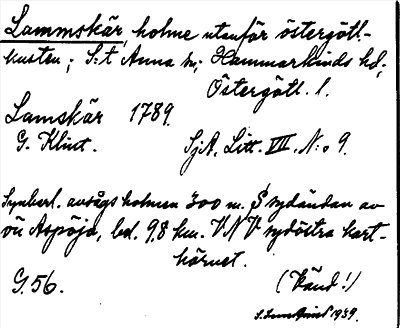 Lammskär, holme utanför östergötl.-
kusten; S:t Anna sn; Hammarkinds hd,
Östergötl. l.
Lamskär 1789.
G. Klint. SjA. Litt. VII, N:o 9.
Synberl. avsågs holmen 300 m. S sydändan av
ön Aspöja, bel. 9,8 km. VNV sydöstra kart-
hörnet.
G. 56. (Känd!)
1939.